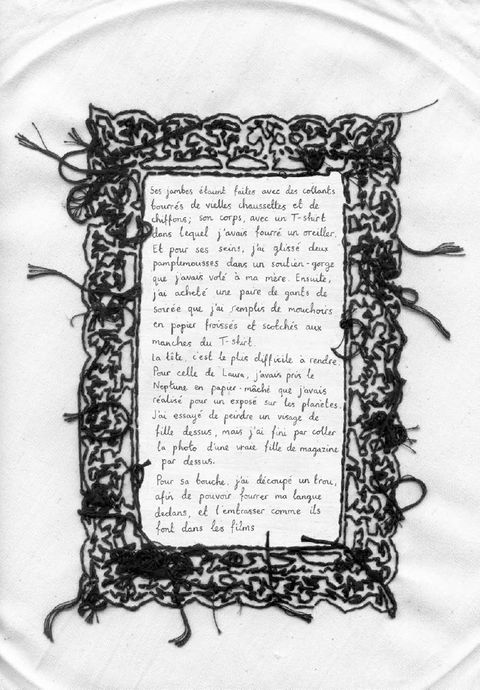 Ses jambes étaient faites avec des collants
bourrés de vielles chaussettes et de
chiffons; son corps, avec un T-shirt
dans lequel j'avais fourré un oreiller.
Et pour ses seins, j'ai glissé deux
pamplemousses dans un soutien-gorge
que j'avais volé à ma mère. Ensuite,
j'ai acheté une paire de gants de
soirée que j'ai remplis de mouchoirs
en papier froissés et scotchés aux
manches du T-shirt.
La tête, c'est le plus difficile à rendre.
Pour celle de Laura, j'avais pris le
Neptune en papier-mâché que j'avais
réalisé pour un exposé sur les planètes.
J'ai essayé de peindre un visage de
fille dessus, mais j'ai fini par coller
la photo d'une vraie fille de magazine
par dessus.
Pour sa bouche, j'ai découpé un trou,
afin de pouvoir fourrer ma langue
dedans, et l'embrasser comme ils
font dans les films